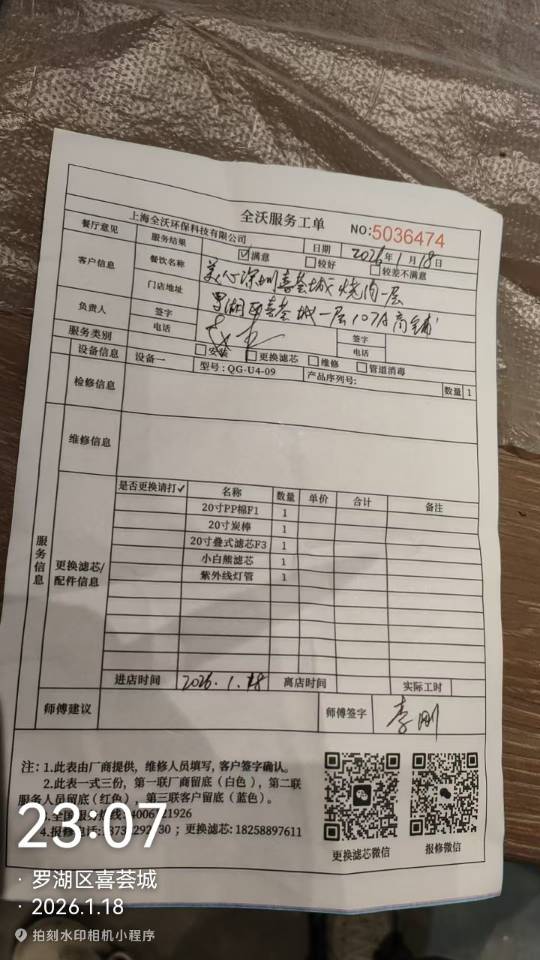 全沃服务工单
NO:5036474
上海全沃环保科技有限公司
日期 2026年1月18日
餐厅意见 服务结果 ☑满意 □较好 □较差不满意
客户信息 餐饮名称 美心深圳喜荟城烧肉一层
门店地址 罗湖区喜荟城一层107A商铺
负责人 签字 签字
电话 电话
服务类别 □安装 □更换滤芯 □维修 □管道消毒
设备信息 设备一 型号:QG-U4-09 产品序列号: 数量 1
检修信息
维修信息
服务信息
更换滤芯/配件信息
是否更换请打✓ 名称 数量 单价 合计 备注
20寸PP棉F1 1
20寸炭棒 1
20寸叠式滤芯F3 1
小白熊滤芯 1
紫外线灯管 1
进店时间 2026.1.18 离店时间 实际工时
师傅建议 师傅签字 李刚
注:1.此表由厂商提供,维修人员填写,客户签字确认。
2.此表一式三份,第一联厂商留底(白色),第二联
服务人员留底(红色),第三联客户留底(蓝色)。
更换滤芯:18258897611
更换滤芯微信 报修微信
23:07
· 罗湖区喜荟城
· 2026.1.18
拍刻水印相机小程序